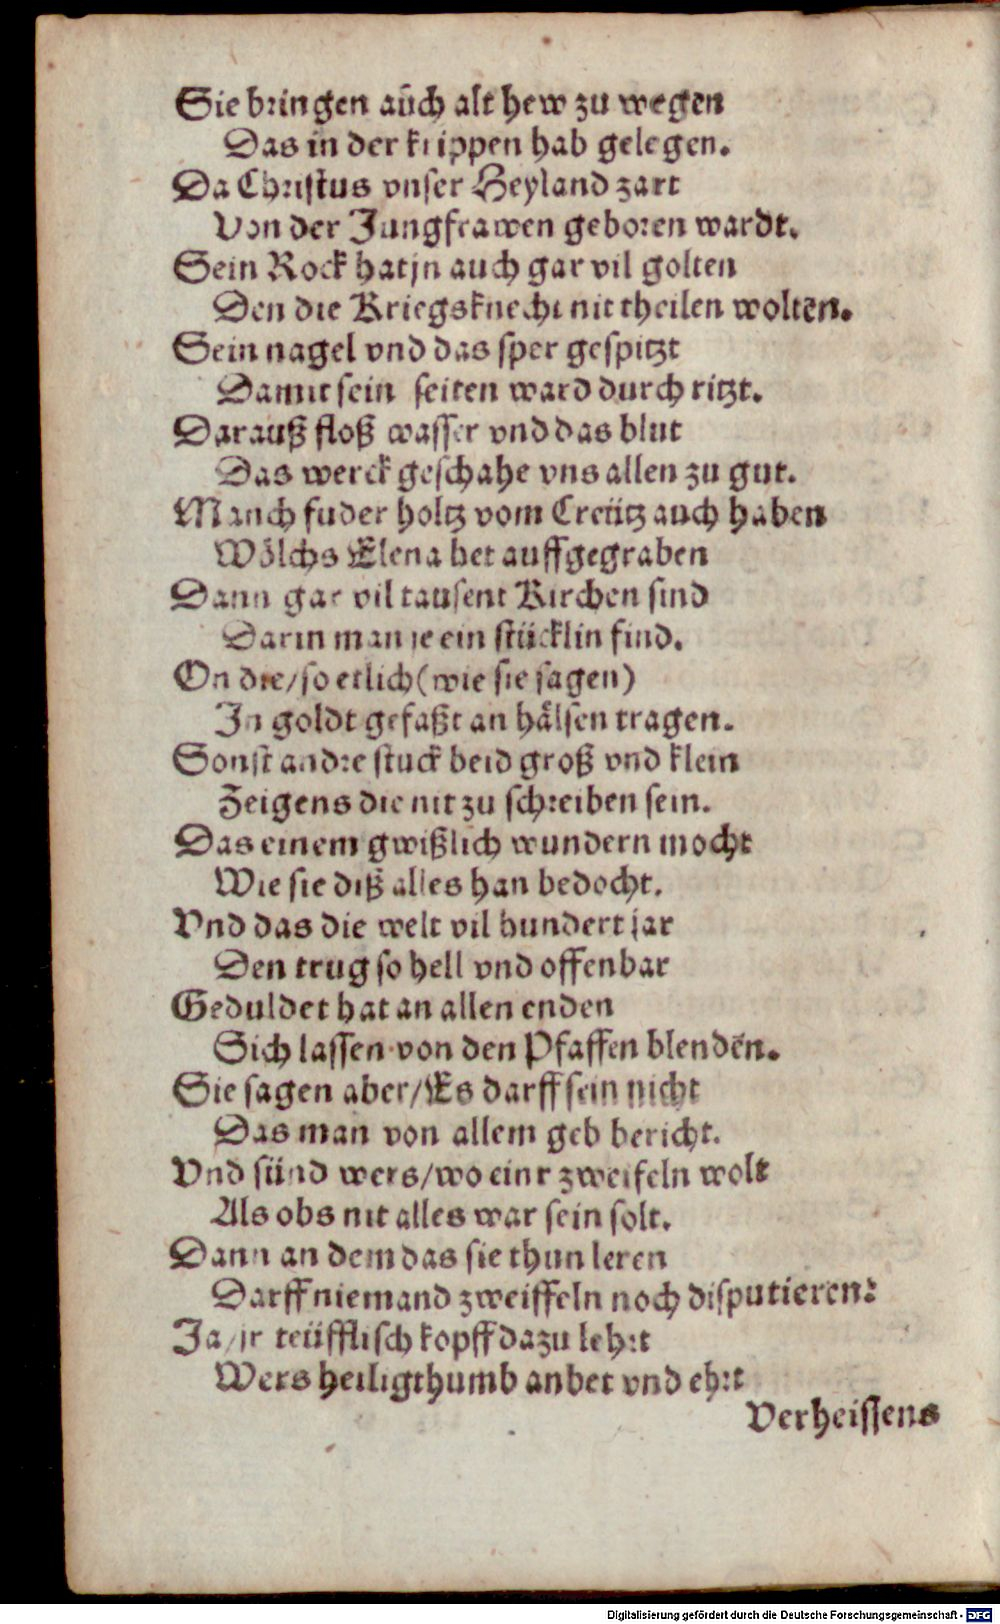 Sie bringen aũch alt hew zu wegen
Das in der krippen hab gelegen.
Da Christus vnser Heyland zart
Von der Jungfrawen geboren wardt.
Sein Rock hat jn auch gar vil golten
Den die Kriegsknecht nit theilen woltẽn.
Sein nagel vnd das sper gespitzt
Damit sein seiten ward durch ritzt.
Darauß floß wasser vnd das blut
Das werck geschahe vns allen zu gut.
Manch fuder holtz vom Creütz auch haben
Wölchs Elena het auffgegraben
Dann gar vil tausent Kirchen sind
Darin man je ein stücklin find.
On die/so etlich (wie sie sagen)
In goldt gefaßt an hälsen tragen.
Sonst andre stuck beid groß vnd klein
Zeigens die nit zu schreiben sein.
Das einem gwißlich wundern mocht
Wie sie diß alles han bedocht.
Vnd das die welt vil hundert jar
Den trug so hell vnd offenbar
Geduldet hat an allen enden
Sich lassen von den Pfaffen blendẽn.
Sie sagen aber/Es darff sein nicht
Das man von allem geb bericht.
Vnd sünd wers/wo einr zweifeln wolt
Als obs nit alles war sein solt.
Dann an dem das sie thun leren
Darff niemand zweiffeln noch disputieren:
Ja/jr teüfflisch kopff dazu lehrt
Wers heiligthumb anbet vnd ehrt
Verheissens
Digitalisierung gefördert durch die Deutsche Forschungsgemeinschaft - DFG